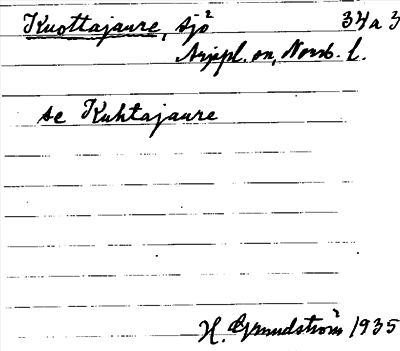 Kuottajaure, sjö 34 a 3
Arjepl. sn, Norrb. l.
se Kuhtajaure
H. Grundström 1935